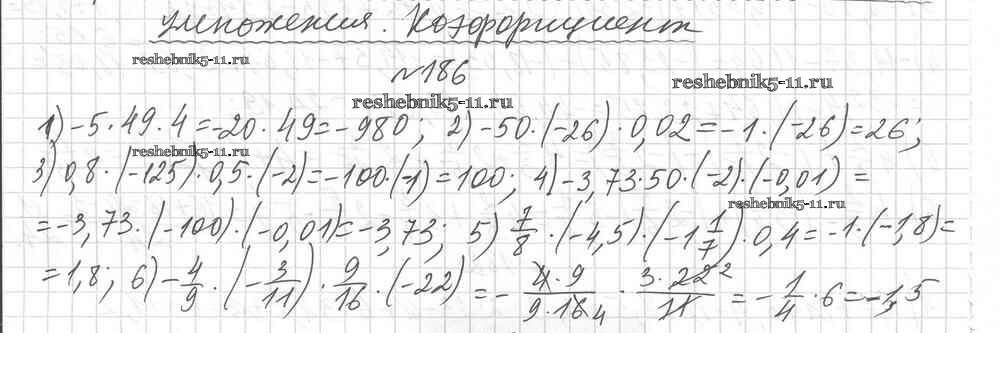 умножения. Коэффициент
reshebnik5-11.ru
№186
reshebnik5-11.ru
reshebnik5-11.ru
1) -5·49·4=-20·49=-980; 2) -50·(-26)·0,02=-1·(-26)=26;
reshebnik5-11.ru
3) 0,8·(-125)·0,5·(-2)=-100·(-1)=100; 4) -3,73·50·(-2)·(-0,01)=
reshebnik5-11.ru
=-3,73·(-100)·(-0,01)=-3,73; 5) 7/8·(-4,5)·(-1 1/7)·0,4=-1·(-1,8)=
=1,8; 6) -4/9·(-3/11)·9/16·(-22)=-4·9/9·16 4·3·22 2/11=-1/4·6=-1,5